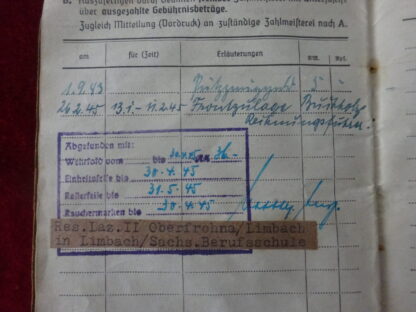 über ausgezahlte Gebührnisbeträge.
Zugleich Mitteilung (Vordruck) an zuständige Zahlmeisterei nach A.
am für (Zeit) Erläuterungen
1.9.43
26.2.45 13.1.- 11.2.45 Frontzulage Buchholz
Rechnungsführer.
Abgefunden mit:
Wehrsold vom bis 30.4.45 36.-
Einheitsseife bis 30.4.45
Rasierseife bis 31.5.45
Rauchermarken bis 30.4.45
Res.Laz.II Oberfrohna/Limbach
in Limbach/Sachs.Berufsschule